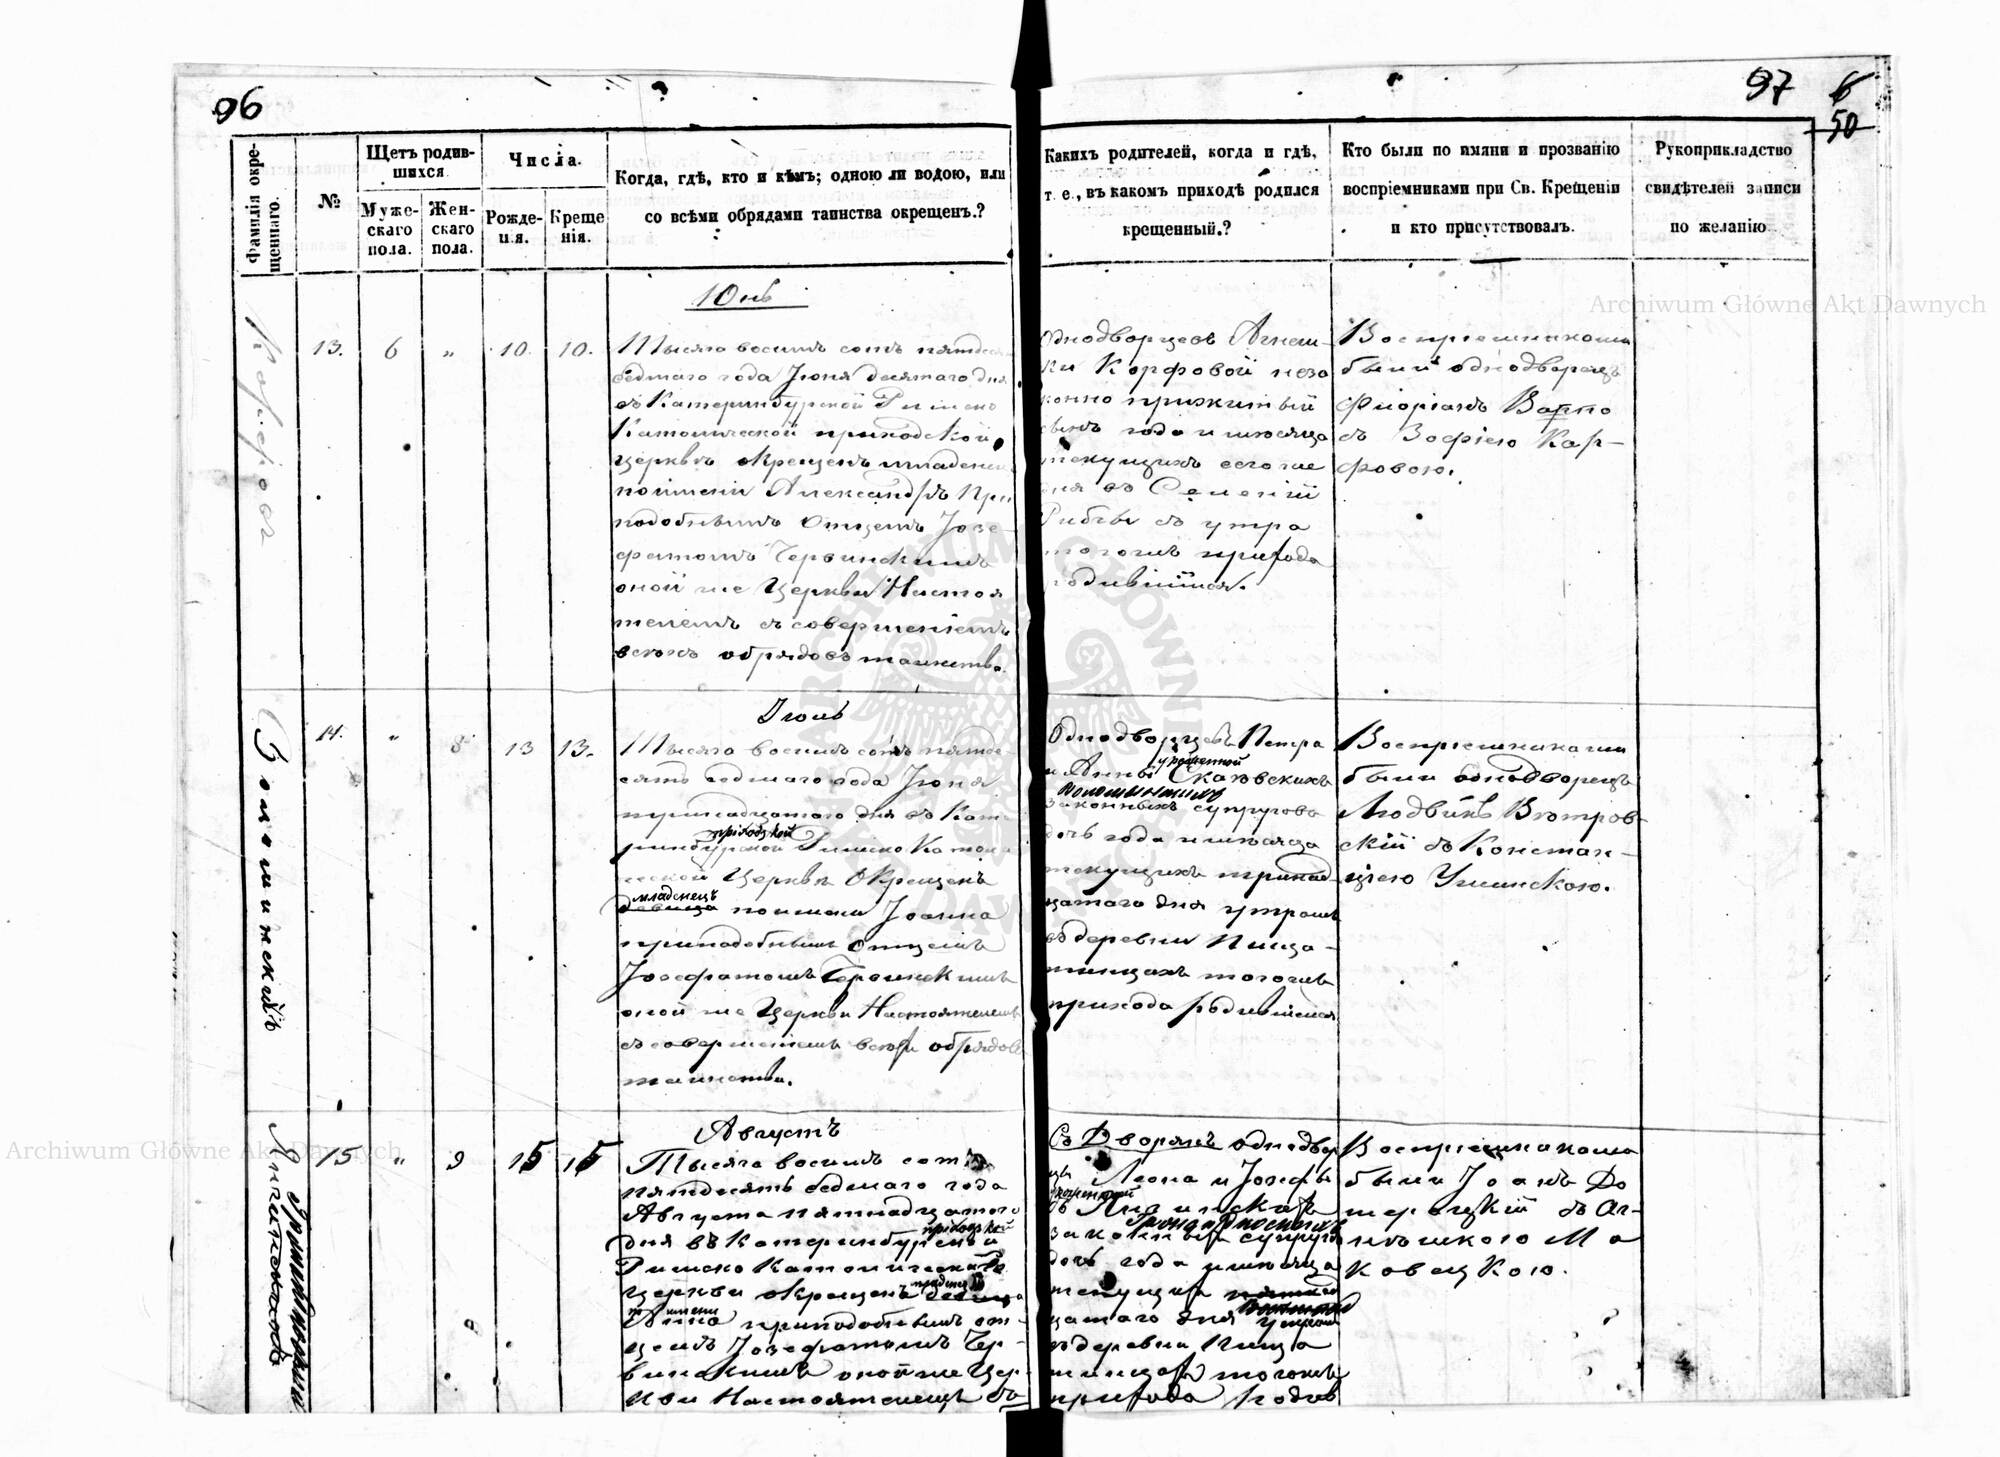 96
97
6
50
Фамилія окре-
щеннаго.
№
Щетъ родив-
шихся
Муже-
скаго
пола.
Жен-
скаго
пола.
Числа.
Рожде-
нія.
Креще
нія.
Когда, гдѣ, кто и кѣмъ; одною ли водою, или
со всѣми обрядами таинства окрещенъ.?
Какихъ родителей, когда и гдѣ,
т. е., въ какомъ приходѣ родился
крещенный.?
Кто были по имяни и прозванію
воспріемниками при Св. Крещеніи
и кто присутствовалъ.
Рукоприкладство
свидѣтелей записи
по желанію
Archiwum Główne Akt Dawnych
Юнь
13. 6 „ 10. 10.
Тысяча восимъ сотъ пятдеся
седмаго года Іюня десятаго дня
въ Катеринбурской Римско
Католической приходской
церквѣ окрещенъ младенец
поимени Александръ Пре
подобнымъ Отцемъ Іозе-
фатомъ Червинскимъ
оной же Церкви Настоя
телемъ съ совершеніемъ
всѣхъ обрядовъ таинства.
Однодворцевъ Агнеш-
ки Корфовой неза
конно прижитый
сынъ года и мѣсяца
текущихъ сего же
дня въ
съ утра
тогожъ прихода
родившійся.
Воспріемниками
были однодворецъ
Флоріанъ
съ Зофіею Кар-
фовою.
14. „ 8 13 13.
Іюль
Тысяча восимъ сотъ пятде-
сятъ седмаго года Іюня
тринадцатого дня въ Кате
приходской
ринбурской Римско Католи
ческой Церквѣ Окрещенъ
младенецъ
девица поимени Іоанна
преподобнымъ Отцемъ
Іозефатомъ Червинскимъ
оной же Церкви Настоятелемъ
съ совершеніемъ всѣхъ обрядовъ
таинства.
Однодворцевъ Петра
урожденной
и Анны Скаковскихъ
законныхъ супруговъ
дочь года и мѣсяца
текущихъ тринад
цатого дня утромъ
въ деревни Пища
тинцахъ тогожъ
прихода родившаяся
Воспріемниками
были однодворецъ
Людвикъ Вѣтров-
скій съ Констан-
ціею Уминскою.
Archiwum Główne Akt Dawnych
15 „ 9 15 15
Августъ
Тысяча восимъ сотъ
пятдесятъ седмаго года
Августа пятнадцатого
приходской
дня въ Катеринбурской
Римско Католической
младенец
Церкви окрещенъ девица
по имени
Анна преподобнымъ от-
цемъ Іозефатомъ Чер-
винскимъ оной же Цер-
кви Настоятелемъ съ
Съ Дворянъ однодвор
цы Леона и Іозефы
законныхъ супруго
дочь года и мѣсяца
текущихъ пятнад
цатого дня утромъ
въ деревни Пища
тинцахъ тогожъ
прихода родив
Воспріемниками
были Іоанъ До
мерацкій съ Аг-
нѣшкою Ма
ковецкою.
ARCHIWUM GŁÓWNE AKT DAWNYCH